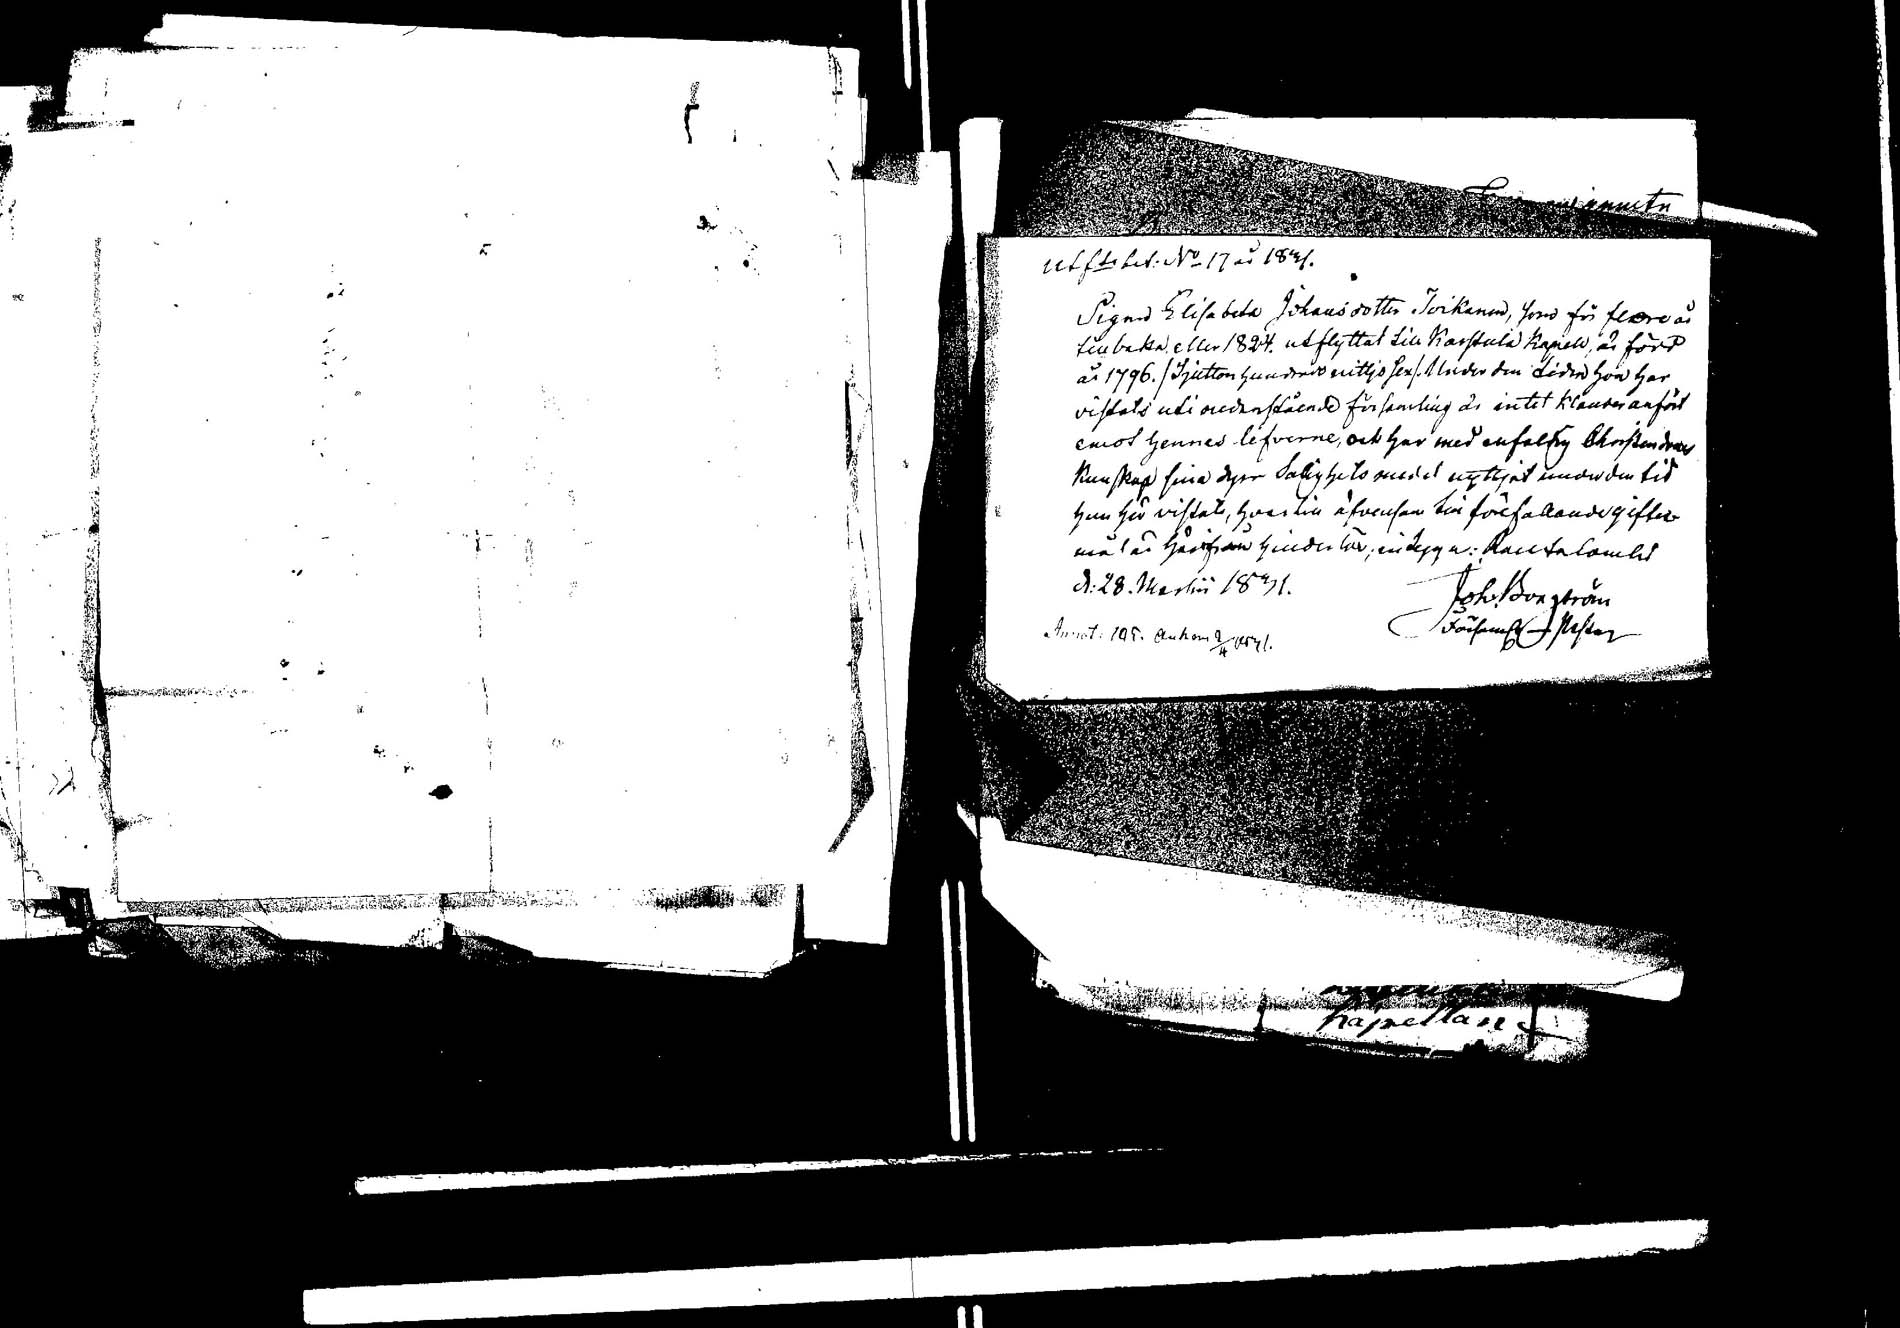 utfl:s bet: No 17 år 1831.
Pigan Elisabeta Johansdotter Toikanen, som för flere år
tillbaka eller 1824. utflyttat till Karstula Kapell, är född
år 1796. /Sjutton hundrade nittio sex/. Under den tiden hon har
vistats uti nedanstående församling är intet klander anfört
emot hennes lefverne, och har med enfaldig Christendoms
kunskap sina dyra Salighets medel nyttjat under den tid
hon här vistats, hvartill äfvensom till förefallande gifter
mål är härifrån hinderlös, intygar: Rautalambi
d: 28. Martii 1831.
Joh. Borgström
Annot: 195. Ankom 2/4 1831.
Kapellan